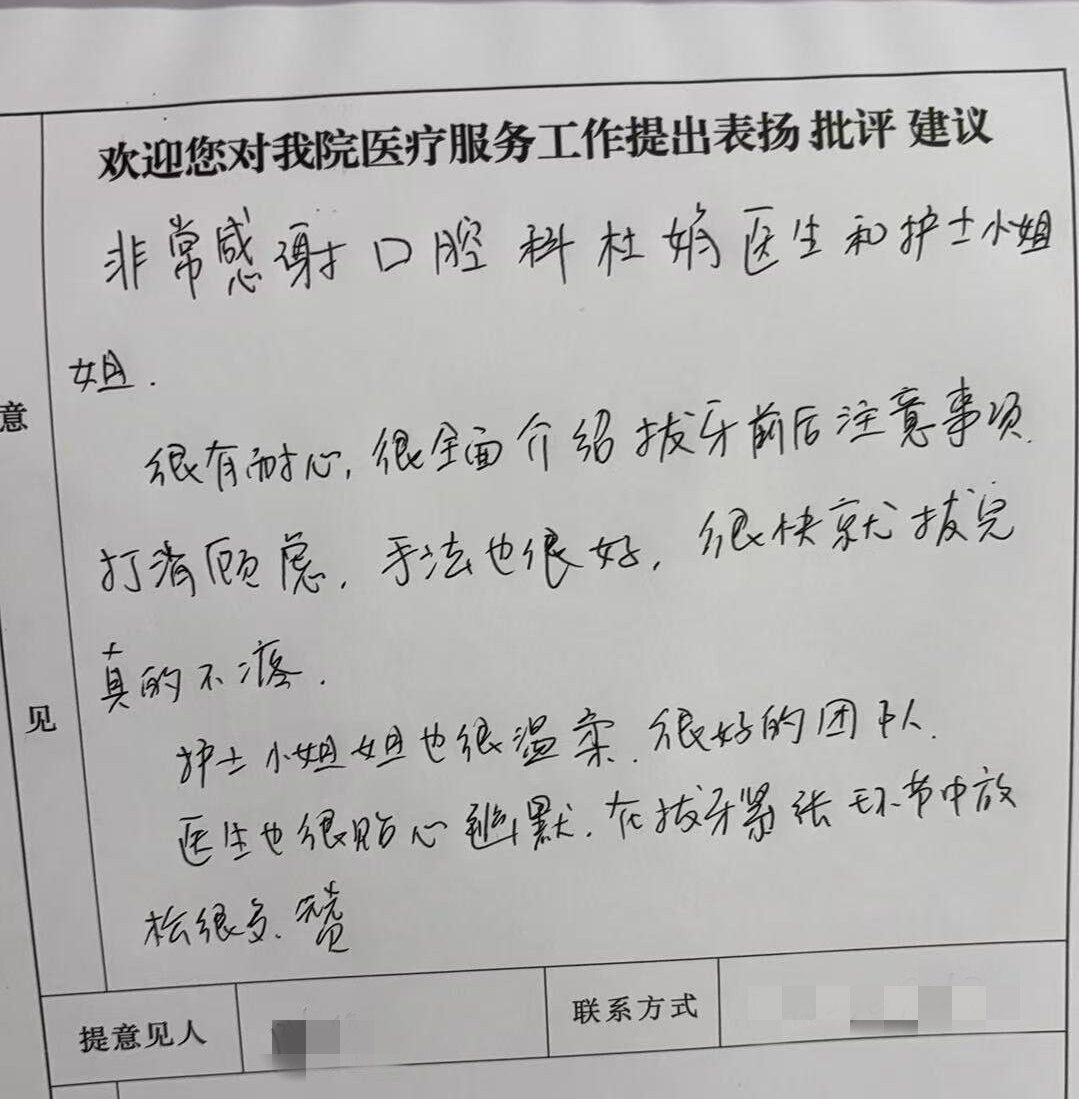 欢迎您对我院医疗服务工作提出表扬 批评 建议
非常感谢口腔科杜娟医生和护士小姐
姐.
很有耐心, 很全面介绍拔牙前后注意事项.
打消顾虑, 手法也很好, 很快就拔完
真的不疼.
护士小姐姐也很温柔. 很好的团队.
医生也很贴心幽默. 在拔牙紧张环节中放
松很多. 赞
意
见
提意见人
联系方式